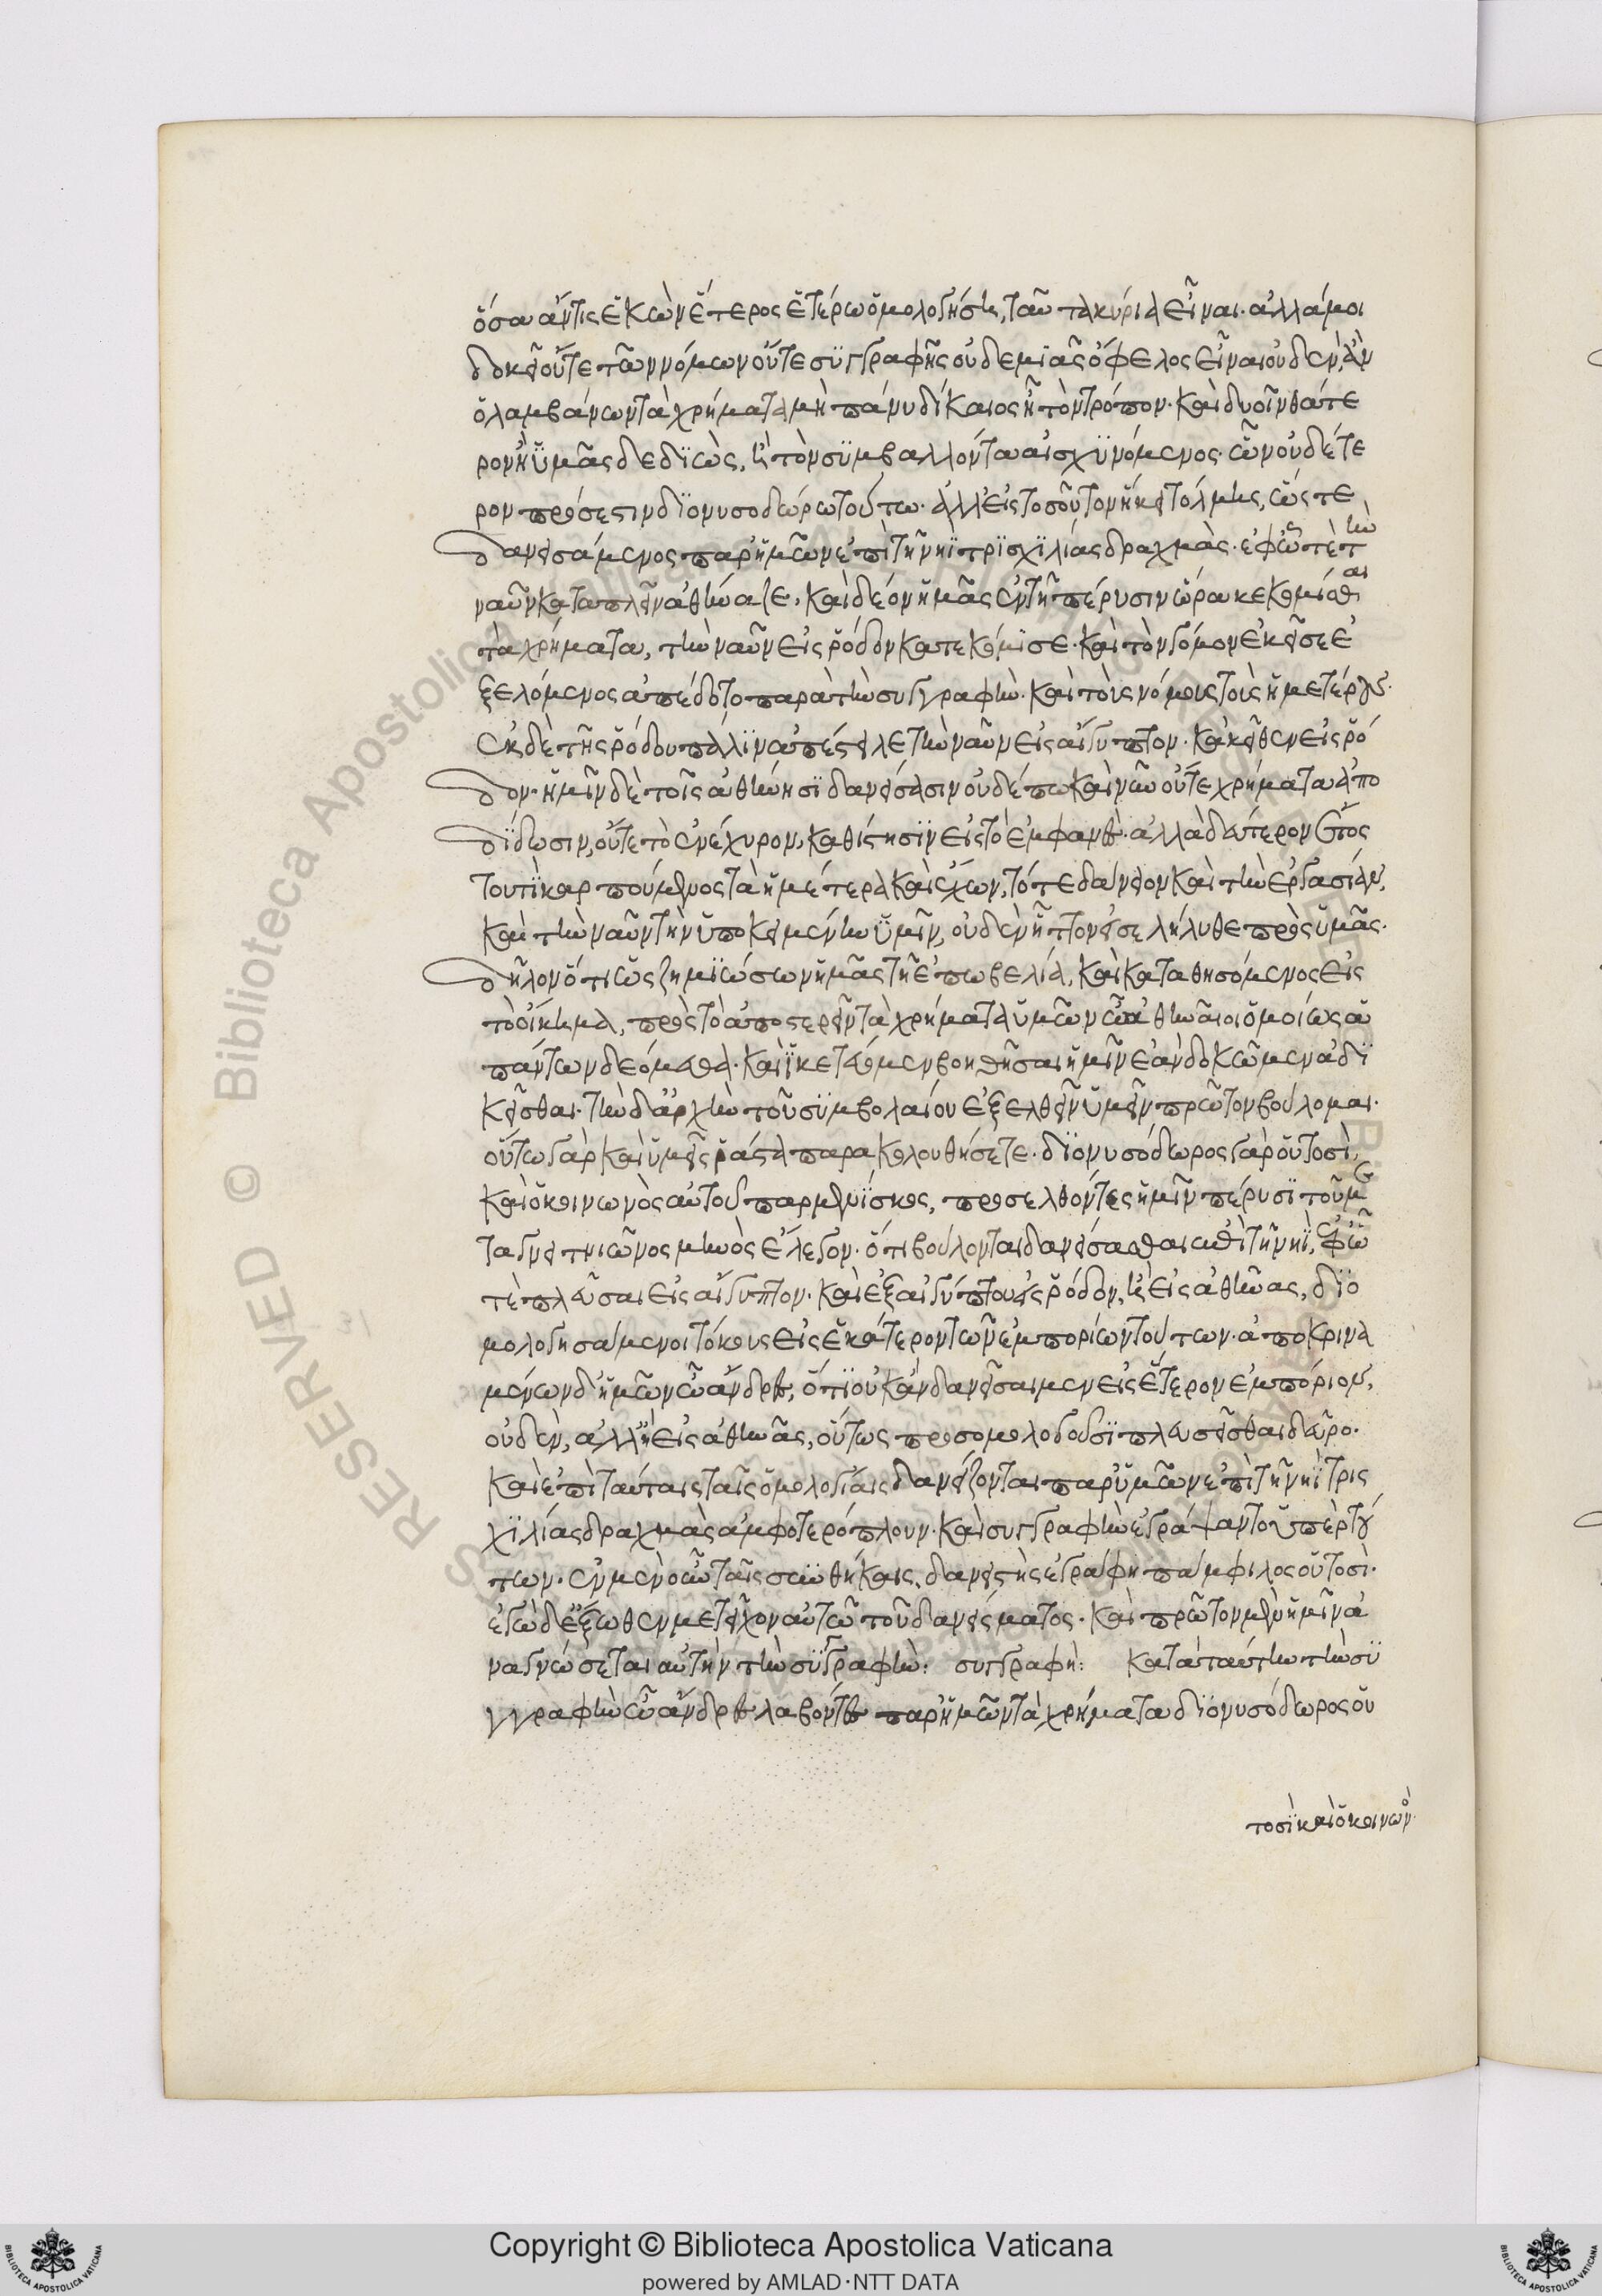 ὅσα ἄν τις ἑκὼν ἕτερος ἑτέρω ὁμολογήση, ταῦτα κύρια εἶναι. ἀλλά μοι
δοκεῖ οὔτε τῶν νόμων οὔτε συγγραφῆς οὐδεμιᾶς ὄφελος εἶναι οὐδὲν, ἂν
ὁ λαμβάνων τὰ χρήματα, μὴ πάνυ δίκαιος ἦ τὸν τρόπον. καὶ δυοῖν θάτε
ρον ἢ ὑμᾶς δεδιὼς, ἢ τὸν συμβαλλόντα αἰσχυνόμενος. ὧν οὐδέτε
ρον πρόσεστιν διονυσοδώρω τούτω. ἀλλ' εἰς τοσοῦτον ἥκει τόλμης, ὥστε
δανεισάμενος παρ' ἡμῶν ἐπὶ τῆ νηῒ τρισχιλίας δραχμὰς. ἐφ' ὧ τε τὴν
ναῦν καταπλεῖν ἀθήναζε, καὶ δέον ἡμᾶς ἐν τῆ πέρυσιν ὥρα κεκομίσθαι
τὰ χρήματα, τὴν ναῦν εἰς ῥόδον κατεκόμισε. καὶ τὸν γόμον ἐκεῖσε ἐ
ξελόμενος ἀπέδοτο παρὰ τὴν συγγραφὴν. καὶ τοὺς νόμους τοὺς ἡμετέρους.
ἐκ δὲ τῆς ῥόδου πάλιν ἀπέστειλε τὴν ναῦν εἰς αἴγυπτον. κἀκεῖθεν εἰς ῥό
δον. ἡμῖν δὲ τοῖς ἀθήνησι δανείσασιν οὐδέπω καὶ νῦν οὔτε χρήματα ἀπο
δίδωσιν, οὔτε τὸ ἐνέχυρον, καθίστησιν εἰς τὸ ἐμφανὲς. ἀλλὰ δεύτερον ἔτος
τουτὶ καρπούμενος τὰ ἡμέτερα καὶ ἔχων, τό τε δάνειον καὶ τὴν ἐργασίαν,
καὶ τὴν ναῦν τὴν ὑποκειμένην ὑμῖν, οὐδὲν ἧττον εἰσελήλυθε πρὸς ὑμᾶς.
δῆλον ὅτι ὡς ζημιώσων ἡμᾶς τῆ ἐπωβελία, καὶ καταθησόμενος εἰς
τὸ οἴκημα, πρὸς τὸ ἀποστερεῖν τὰ χρήματα ὑμῶν ὦ ἀθηναῖοι ὁμοίως ἁ
πάντων δεόμεθα. καὶ ἱκετεύομεν βοηθῆσαι ἡμῖν ἐὰν δοκῶμεν ἀδι
κεῖσθαι. τὴν δ' ἀρχὴν τοῦ συμβολαίου ἐξελθεῖν ὑμεῖν πρῶτον βούλομαι.
οὕτω γὰρ καὶ ὑμεῖς ῥάστα παρακολουθήσετε. διονυσόδωρος γὰρ οὑτοσὶ,
καὶ ὁ κοινωνὸς αὐτοῦ παρμενίσκος, προσελθόντες ἡμῖν πέρυσι τοῦ με
ταγειτνιῶνος μηνὸς ἔλεγον. ὅτι βούλονται δανείσασθαι ἐπὶ τῆ νηῒ, ἐφ' ὧ
τε πλεῦσαι εἰς αἴγυπτον. καὶ ἐξ αἰγύπτου εἰς ῥόδον, ἢ εἰς ἀθήνας, διο
μολογησάμενοι τόκους εἰς ἑκάτερον τῶν ἐμπορίων τούτων. ἀποκρινα
μένων δ' ἡμῶν ὦ ἄνδρες, ὅτι οὐκ ἂν δανείσαιμεν εἰς ἕτερον ἐμπόριον,
οὐδὲν, ἀλλ' ἢ εἰς ἀθήνας, οὕτως προσομολογοῦσι πλευσεῖσθαι δεῦρο.
καὶ ἐπὶ ταύταις ταῖς ὁμολογίαις δανείζονται παρ' ὑμῶν ἐπὶ τῆ νηῒ τρις
χιλίας δραχμὰς ἀμφοτερόπλουν. καὶ συγγραφὴν ἐγράψαντο ὑπὲρ τού
των. ἐν μὲν οὖν ταῖς συνθήκαις, δανειστὴς ἐγράφη πάμφιλος οὑτοσὶ.
ἐγὼ δ' ἔξωθεν μετεῖχον αὐτῶ τοῦ δανείσματος. καὶ πρῶτον μὲν ἡμῖν ἀ
ναγνώσεται αὐτὴν τὴν συγγραφὴν: συγγραφὴ: κατὰ ταύτην τὴν συ
γγραφὴν ὦ ἄνδρες λαβόντες παρ' ἡμῶν τὰ χρήματα διονυσόδωρος οὑ
τοσὶ καὶ ὁ κοινων
Copyright © Biblioteca Apostolica Vaticana
powered by AMLAD·NTT DATA